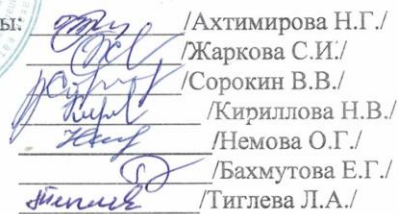 ы: /Ахтимирова Н.Г./
/Жаркова С.И./
/Сорокин В.В./
/Кириллова Н.В./
/Немова О.Г./
/Бахмутова Е.Г./
/Тиглева Л.А./